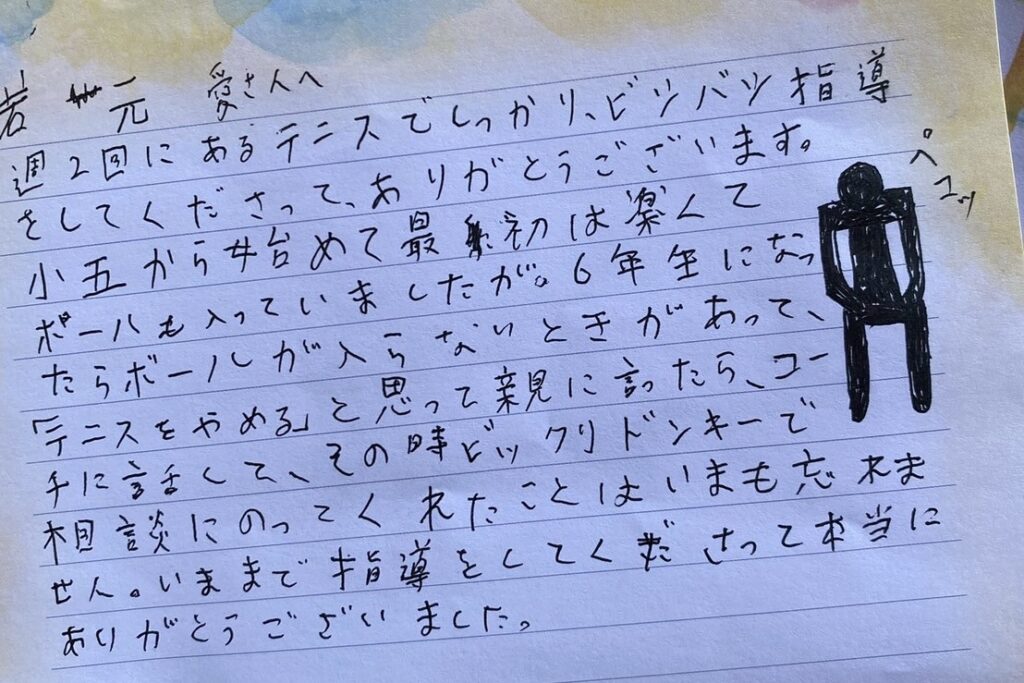 若 元 愛さんへ
週2回にあるテニスでしっかり、ビシバシ指導
をしてくださって、ありがとうございます。
小五から始めて最初は楽くて
ボールも入っていましたが。6年生になっ
たらボールが入らないときがあって、
「テニスをやめる」と思って親に言ったら、コー
チに話して、その時ビックリドンキーで
相談にのってくれたことはいまも忘れま
せん。いままで指導をしてくださって本当に
ありがとうございました。
ペコッ